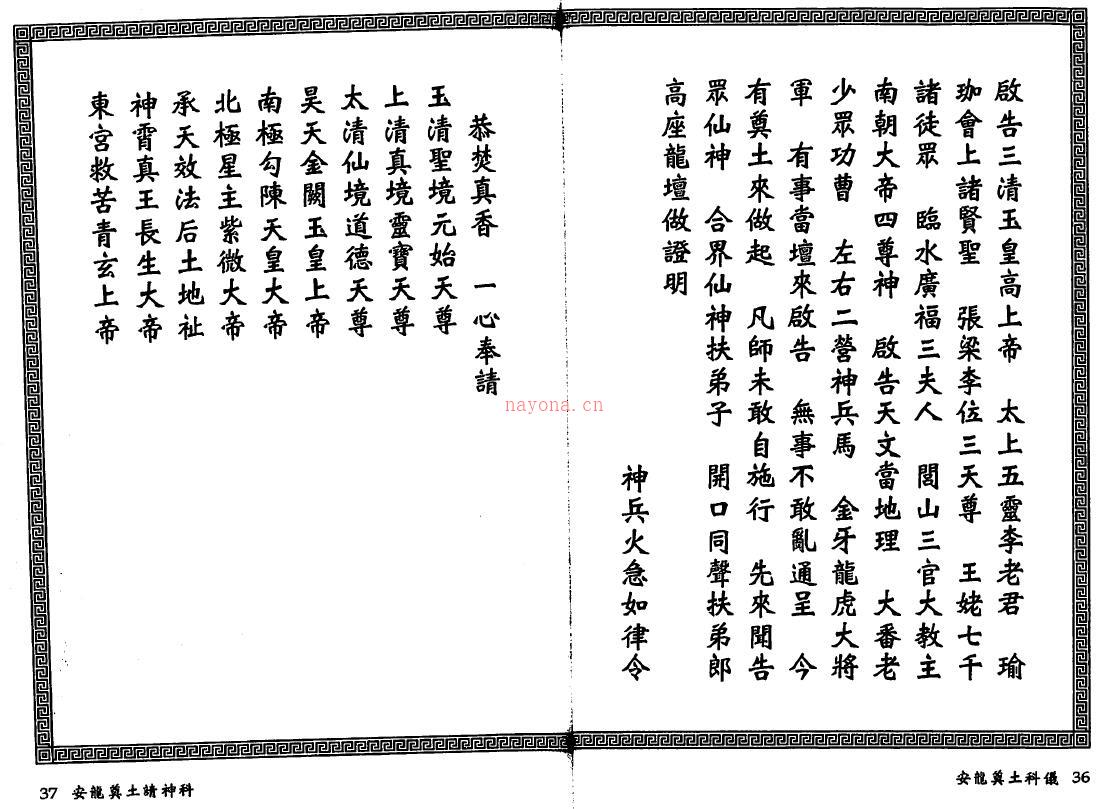 啟告三清玉皇高上帝　太上五靈李老君　瑜
珈會上諸賢聖　張梁李位三天尊　王姥七千
諸徒眾　臨水廣福三夫人　閭山三官大教主
南朝大帝四尊神　啟告天文當地理　大番老
少眾功曹　左右二營神兵馬　金牙龍虎大將
軍　有事當壇來啟告　無事不敢亂通呈　今
有奠土來做起　凡師未敢自施行　先來聞告
眾仙神　合界仙神扶弟子　開口同聲扶弟郎
高座龍壇做證明
神兵火急如律令
安龍奠土科儀 36
恭焚真香　一心奉請
玉清聖境元始天尊
上清真境靈寶天尊
太清仙境道德天尊
昊天金闕玉皇上帝
南極勾陳天皇大帝
北極星主紫微大帝
承天效法后土地祉
神霄真王長生大帝
東宮救苦青玄上帝
37 安龍奠土請神科
nayona.cn